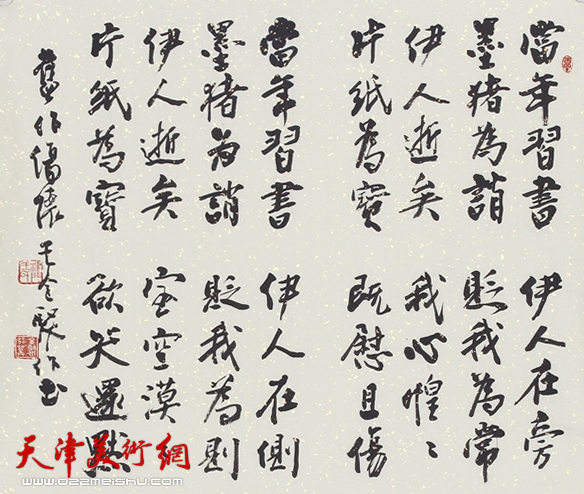 當年習書 伊人在旁
墨猪為誚 貶我為常
伊人逝矣 我心惶〻
片紙為寶 既慰且傷
當年習書 伊人在側
墨猪為誚 貶我為則
伊人逝矣 室空漠
片紙為寶 欲哭還默
舊作傷懷 王全聚作書
天津美術網
www.022meishu.com